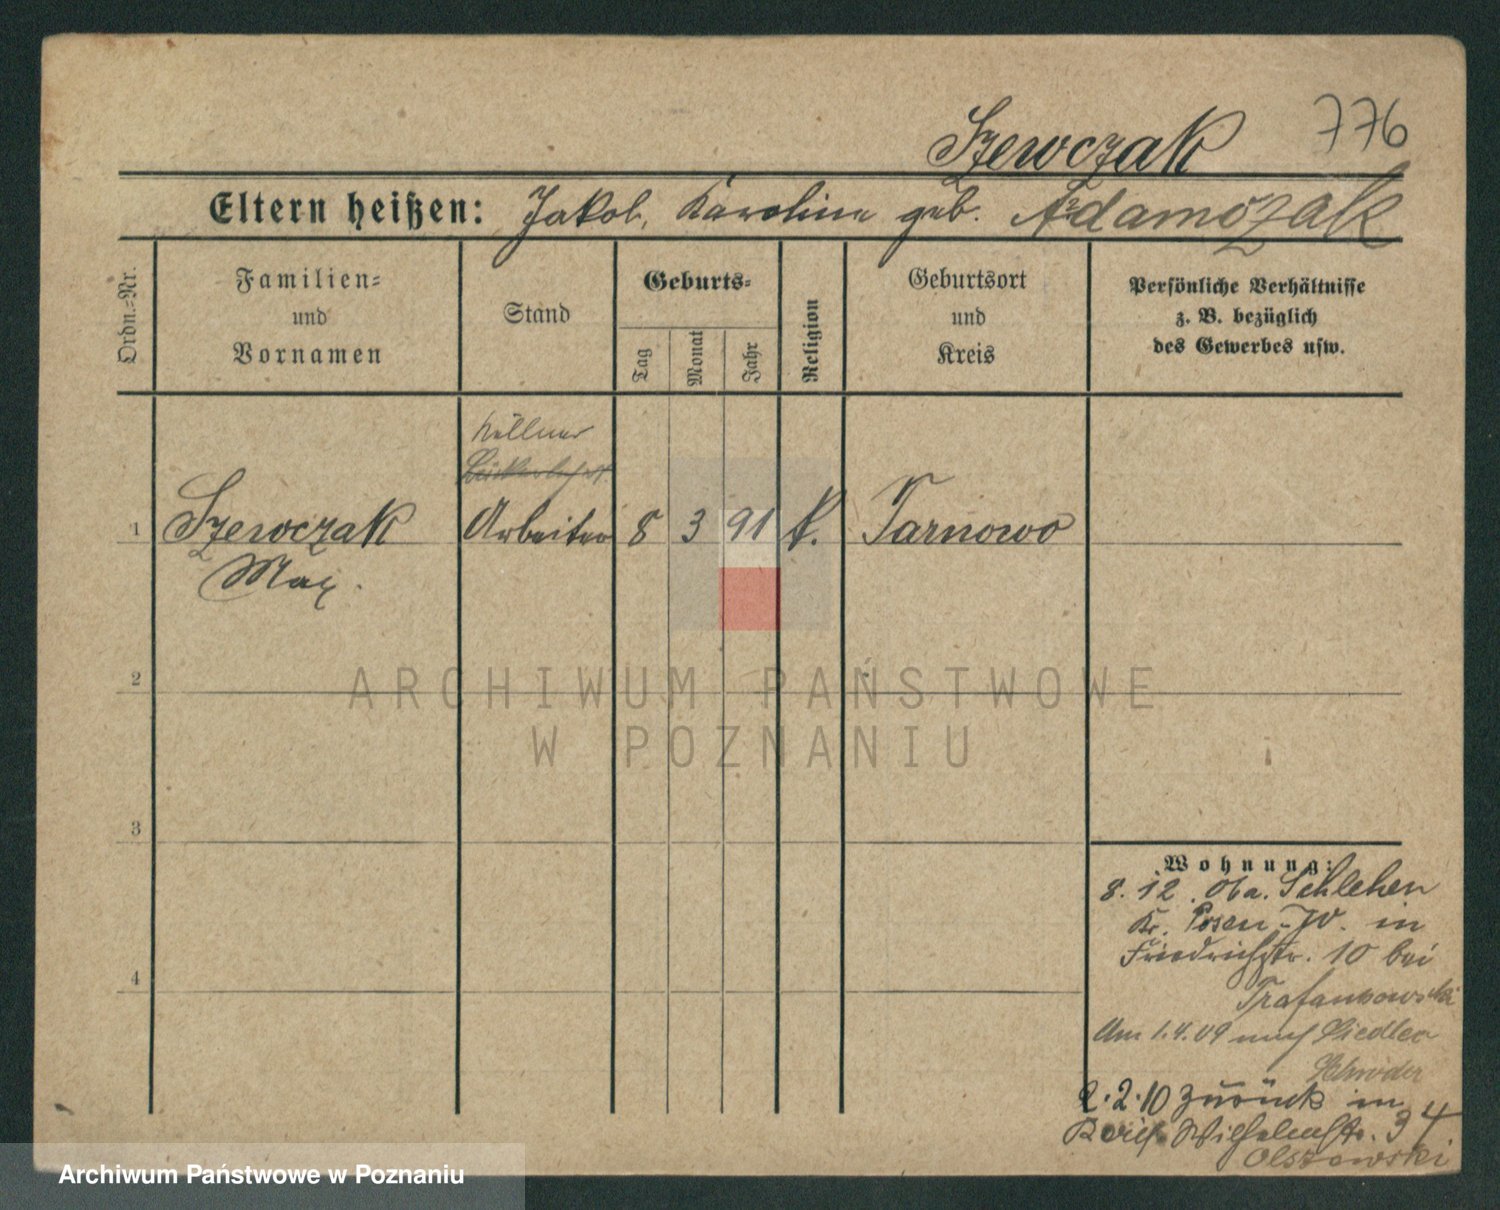 776
Szewczak
Eltern heißen: Jakob, Karoline geb. Adamczak
Ordn.-Nr.
Familien-
und
Vornamen
Stand
Geburts-
Tag
Monat
Jahr
Religion
Geburtsort
und
Kreis
Persönliche Verhältnisse
z. B. bezüglich
des Gewerbes usw.
Kellner
1 Szewczak Arbeiter 8 3 91 k. Tarnowo
Max.
2
ARCHIWUM PAŃSTWOWE
W POZNANIU
3
4
Wohnung:
8. 12. 08 a. Schlehen
Kr. Posen-W. in
Friedrichstr. 10 bei
Am 1.4.09 nach
2.2.10 zurück in
Wilhelmstr. 34
Olszewski
Archiwum Państwowe w Poznaniu